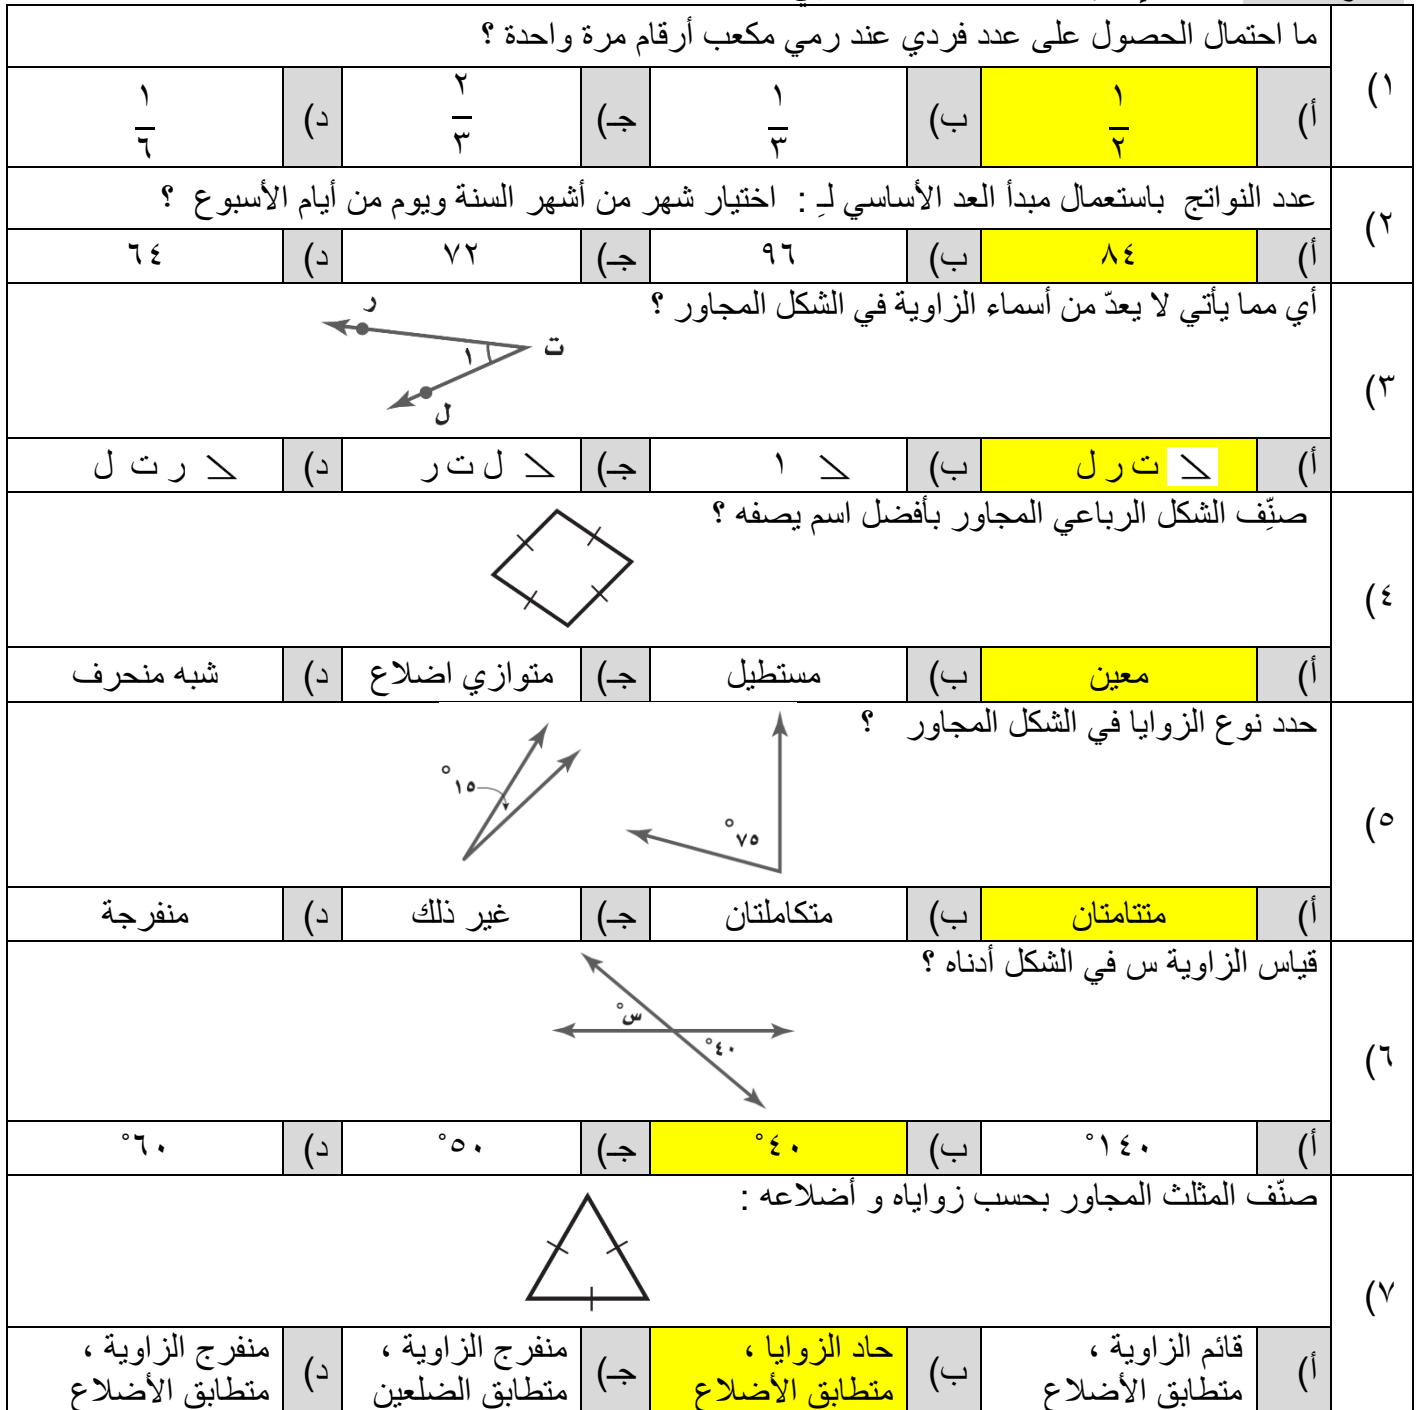 ١) ما احتمال الحصول على عدد فردي عند رمي مكعب أرقام مرة واحدة ؟
أ) ١/٢ ب) ١/٣ جـ) ٢/٣ د) ١/٦
٢) عدد النواتج باستعمال مبدأ العد الأساسي لـِ : اختيار شهر من أشهر السنة ويوم من أيام الأسبوع ؟
أ) ٨٤ ب) ٩٦ جـ) ٧٢ د) ٦٤
٣) أي مما يأتي لا يعدّ من أسماء الزاوية في الشكل المجاور ؟
ر
ت
١
ل
أ) ∠ ت ر ل ب) ∠ ١ جـ) ∠ ل ت ر د) ∠ ر ت ل
٤) صنِّف الشكل الرباعي المجاور بأفضل اسم يصفه ؟
أ) معين ب) مستطيل جـ) متوازي اضلاع د) شبه منحرف
٥) حدد نوع الزوايا في الشكل المجاور ؟
١٥°
٧٥°
أ) متتامتان ب) متكاملتان جـ) غير ذلك د) منفرجة
٦) قياس الزاوية س في الشكل أدناه ؟
س°
٤٠°
أ) ١٤٠° ب) ٤٠° جـ) ٥٠° د) ٦٠°
٧) صنّف المثلث المجاور بحسب زواياه و أضلاعه :
أ) قائم الزاوية ، متطابق الأضلاع ب) حاد الزوايا ، متطابق الأضلاع جـ) منفرج الزاوية ، متطابق الضلعين د) منفرج الزاوية ، متطابق الأضلاع